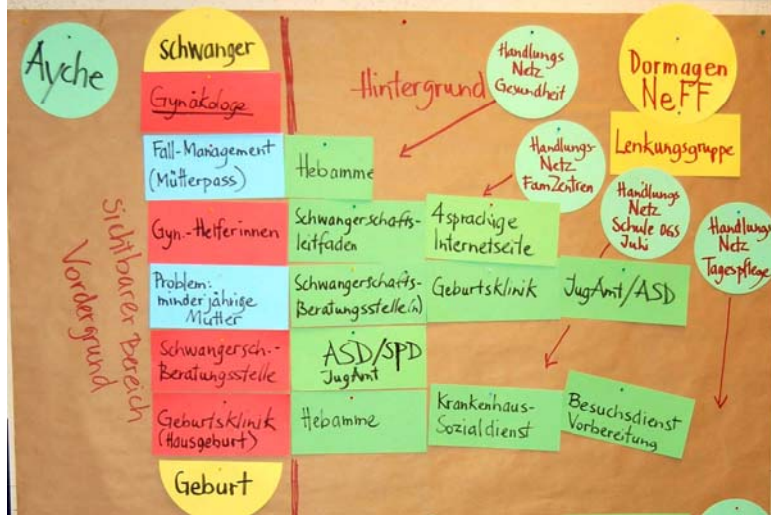 Ayche
Schwanger
Gynäkologe
Fall-Management
(Mütterpass)
Gyn.-Helferinnen
Problem:
minderjährige
Mütter
Schwangersch.-
Beratungsstelle
Geburtsklinik
(Hausgeburt)
Geburt
Sichtbarer Bereich
Vordergrund
Hintergrund
Hebamme
Schwangerschafts-
leitfaden
Schwangerschafts-
Beratungsstelle(n)
ASD/SPD
JugAmt
Hebamme
4sprachige
Internetseite
Geburtsklinik
JugAmt/ASD
Krankenhaus-
Sozialdienst
Besuchsdienst
Vorbereitung
Handlungs
Netz
Gesundheit
Handlungs-
Netz
FamZentren
Handlungs
Netz
Schule OGS
Juhi
Handlungs
Netz
Tagespflege
Dormagen
NeFF
Lenkungsgruppe